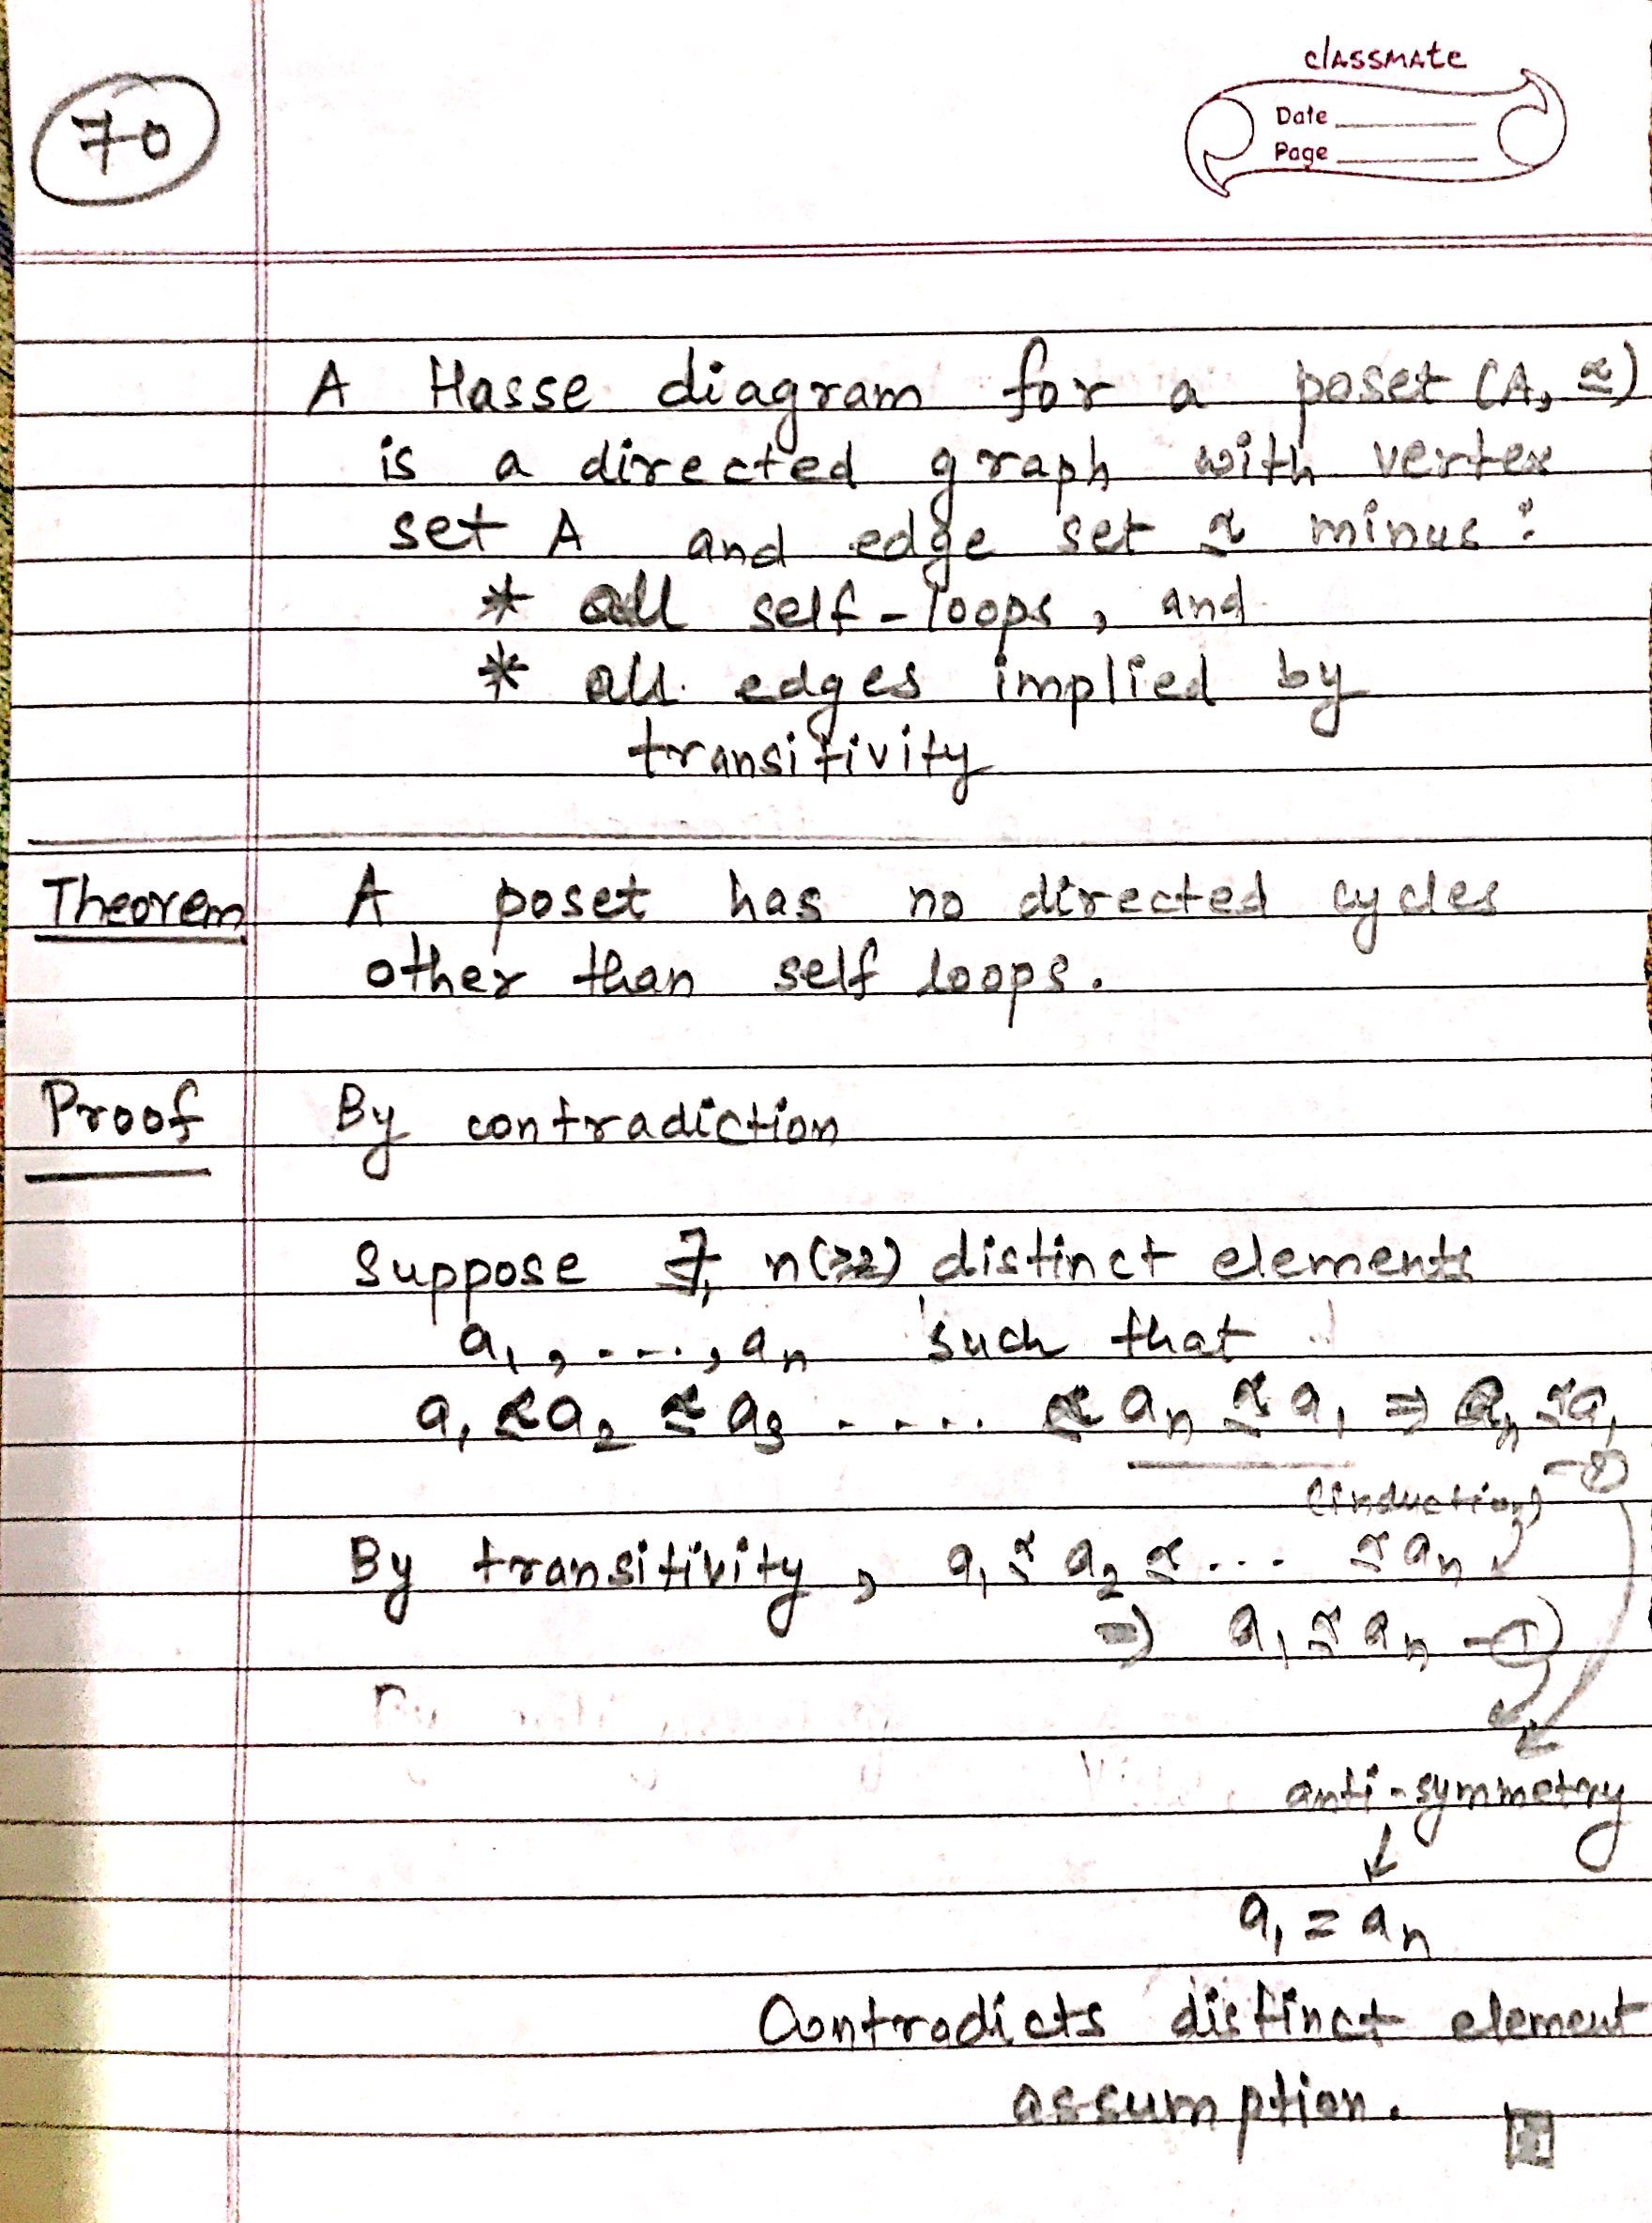 classmate
Date
Page
70
A Hasse diagram for a poset (A, ⪯)
is a directed graph with vertex
set A and edge set ⪯ minus :
* all self-loops, and
* all edges implied by
transitivity
Theorem A poset has no directed cycles
other than self loops.
Proof By contradiction
Suppose ∃ n(≥2) distinct elements
a₁, ...., aₙ such that
a₁ ⪯ a₂ ⪯ a₃ ..... ⪯ aₙ ⪯ a₁ ⇒ aₙ ⪯ a₁
(induction)
By transitivity, a₁ ⪯ a₂ ⪯ ... ⪯ aₙ
⇒ a₁ ⪯ aₙ —①
anti-symmetry
↓
a₁ = aₙ
Contradicts distinct element
assumption.